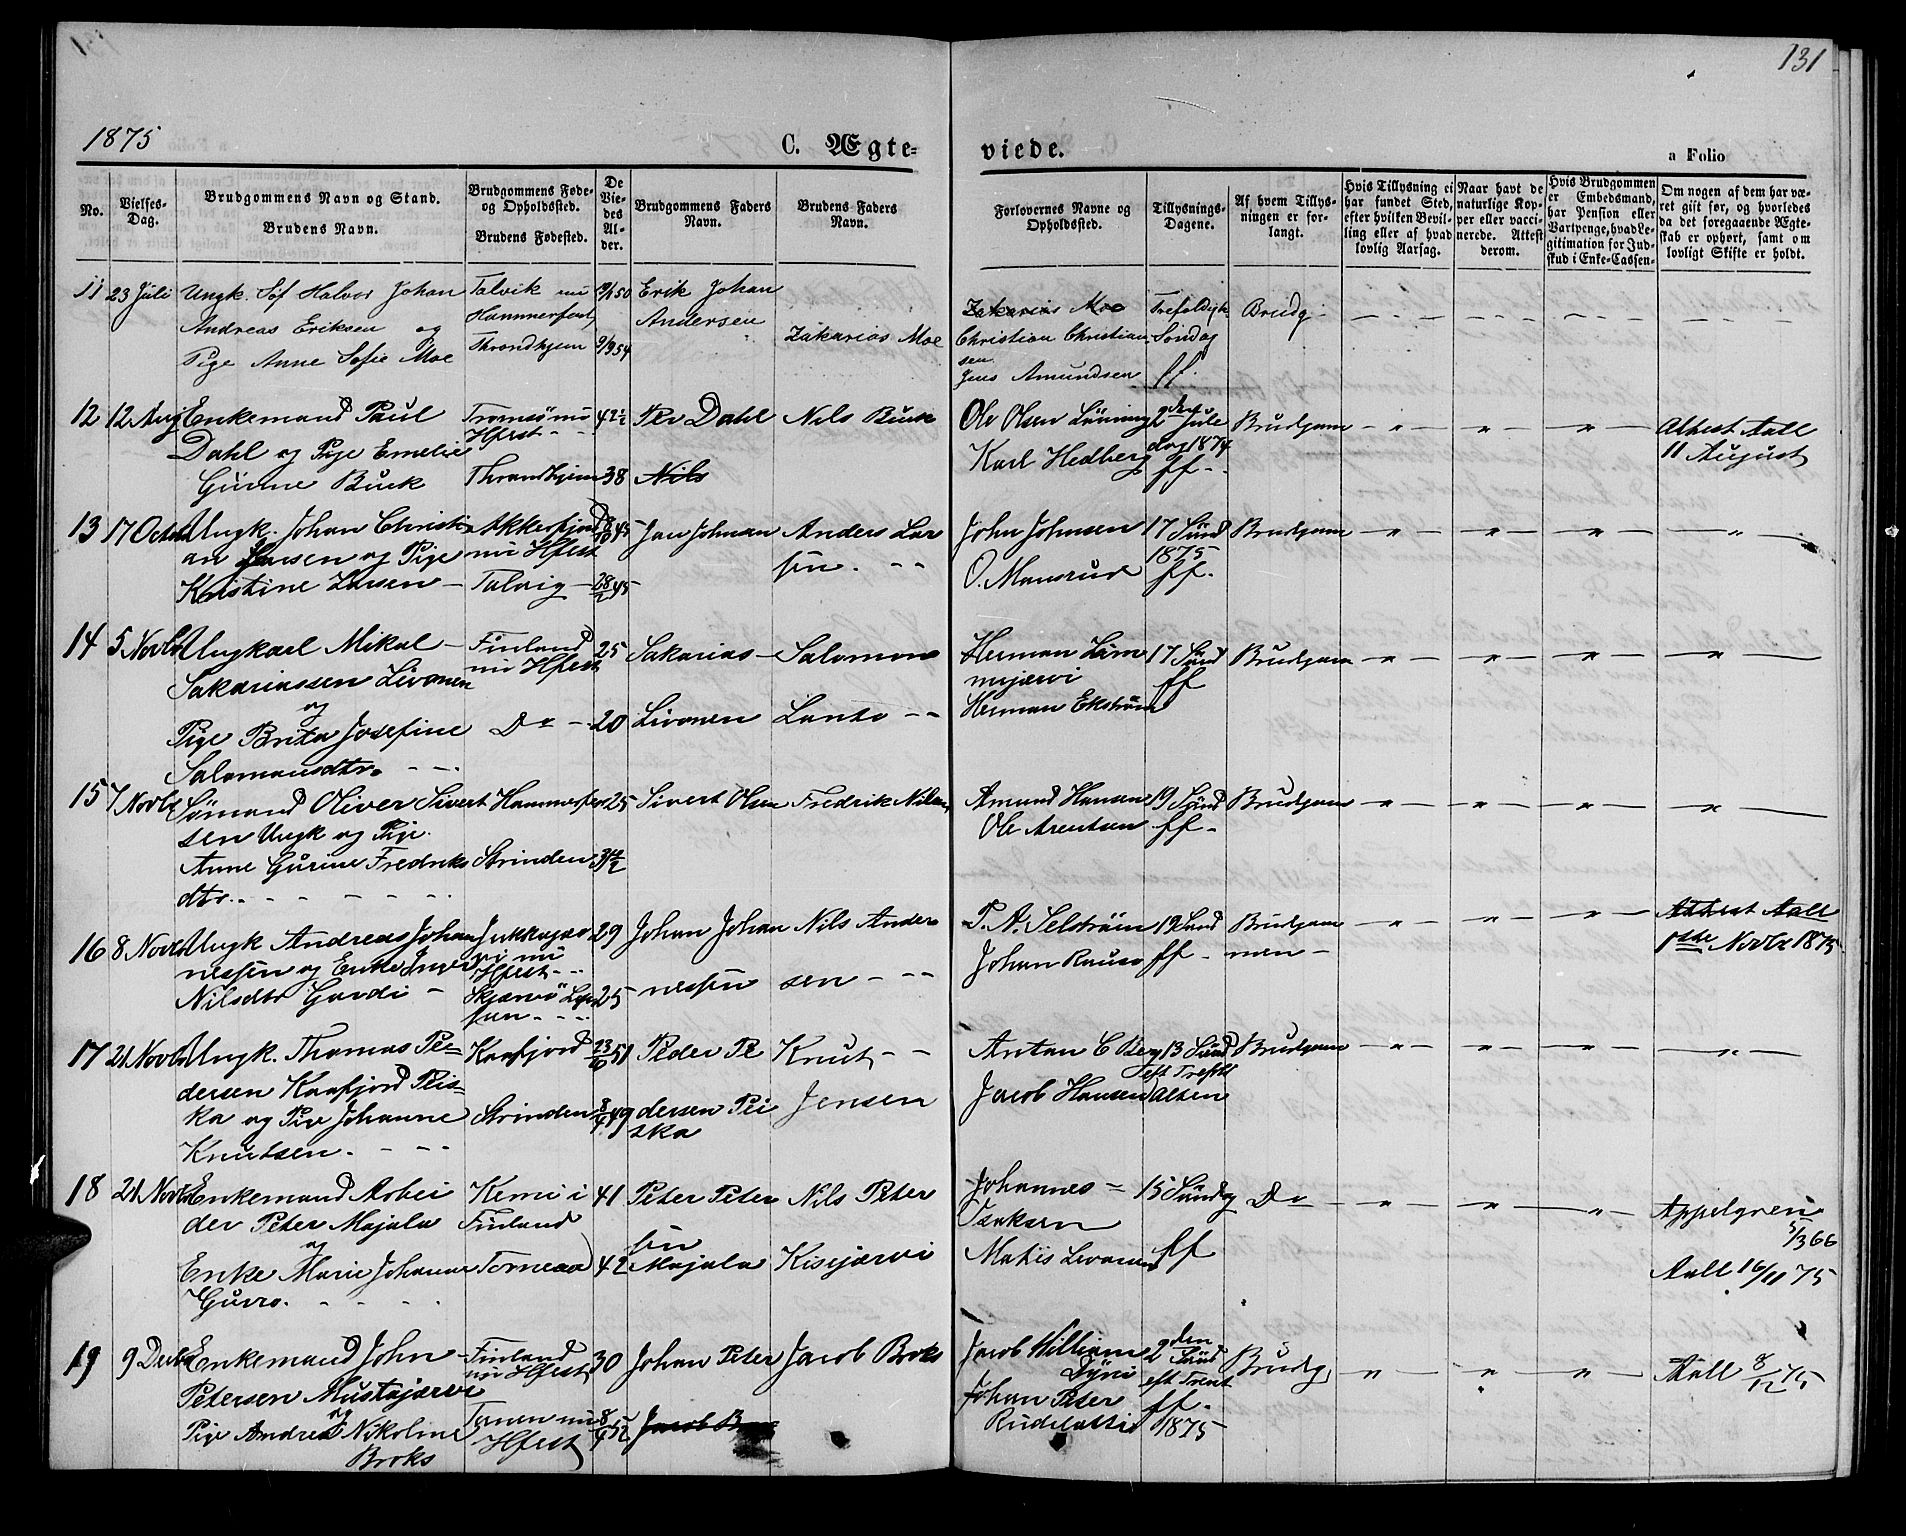 131
1875
C. Ægte-
viede.
a Folio
No.
Vielses-
Dag.
Brudgommens Navn og Stand.
Brudens Navn.
Brudgommens Føde-
og Opholdssted.
Brudens Fødested.
De
Vie-
des
Al-
der.
Brudgommens Faders
Navn.
Brudens Faders
Navn.
Forlovernes Navne og
Opholdssted.
Tillysnings-
Dagene.
Af hvem Tillys-
ningen er for-
langt.
Hvis Tillysning ei
har fundet Sted,
efter hvilken Bevil-
ling eller af hvad
lovlig Aarsag.
Naar havt de
naturlige Kop-
per eller vacci-
nerede. Attest
derom.
Hvis Brudgommen
er Embedsmand,
har Pension eller
Vartpenge, hvad Le-
gitimation for Ind-
skud i Enke-Cassen.
Om nogen af dem har væ-
ret gift før, og hvorledes
da det foregaaende Ægte-
skab er ophørt, samt om
lovligt Skifte er holdt.
11 23 Juli Ungk. Søf Halvor Johan
Andreas Eriksen og
Pige Anne Sofie Moe
Talvik nu
Hammerfest,
Throndhjem
9/1 50
9/9 54
Erik Johan
Andersen
Zakarias Moe
Zakarias Moe
Christian Christian
sen
Jens Amundsen
Trefoldigh
Søndag
ff.
Brudg.
12 12 Aug Enkemand Paul
Dahl og Pige Emelie
Gurine Buck
Tromsø nu
Hfest
Throndhjem
42½
38
Per Dahl
Nils
Nils Buck
Ole Olsen Løning
Karl Hedberg
2den Jule
dag 1874
ff.
Brudgom
Attest Aall
11 August
13 17 Octb Ungk. Johan Christi-
an Jansen og Pige
Kristine Larsen
Akkerfjord
nu Hfest
Talvig
8/10 45
28/2 45
Jan Johnsen
Anders Lar
sen
John Johnsen
O. Mansrud
17 Sünd
1875
ff.
Brudgom
14 5 Novbr Ungkarl Mikal
Sakariassen Livonen
og
Pige Brita Josefine
Salomonsdtr.
Finland
nu Hfest
Do
25
20
Sakarias
Livonen
Salomon
Lanto
Herman Lam
mejærvi
Herman Ekstrøm
17 Sünd
ff
Brudgom
15 7 Novbr Sømand Oliver Sivert
sen Ungk og Pige
Anne Gurine Fredriks
dtr.
Hammerfest
Strinden
25
31½
Sivert Olsen
Fredrik Nilsen
Amund Hansen
Ole Arentsen
19 Sünd
ff.
Brudgom
16 8 Novbr Ungk Andreas Johan
nessen og Enke Inger
Nilsdtr Gardi
Jukkasjær
vi nu
Hfest
Skjærvö
29
25
Johan Johan
nessen
Nils Ander
sen
P. A. Selstrøm
Johan Rauso
19 Sünd
ff.
Brudgom
men
Attest Aall
1ste Novbr 1875
17 21 Novbr Ungk. Thomas Pe-
dersen Kaafjord Peis-
ka og Pige Johanne
Knutsen.
Kaafjord
Strinden
51
8/4 49
Peder Pe
dersen Pei
ska
Knut
Jensen
Anton C Berg
Jacob Hansen
13 Sünd
eft Trefth
Alten
Brudgom
18 21 Novbr Enkemand Arbei
der Peter Majala
og
Enke Marie Johanne
Guvro.
Kemi i
Finland
Torneaa
41
42
Peter Peter
sen
Majala
Nils Peter
Kisijærvi
Johannes
Isaksen
Matiis Livonen
15 Sündg
ff
Do
Appelgren
5/3 66
Aall 16/11 75
19 9 Decbr Enkemand John
Petersen Mustajærvi
og
Pige Andrea Nikoline
Broks
Finland
nu Hfest
Tanen nu
Hfest
30
8/4 52
Johan Peter
Jacob Broks
Jacob William
Johan Peter
2den
Sünd
eft Trenit
ff.
1875
Brudg
Aall 8/12 75